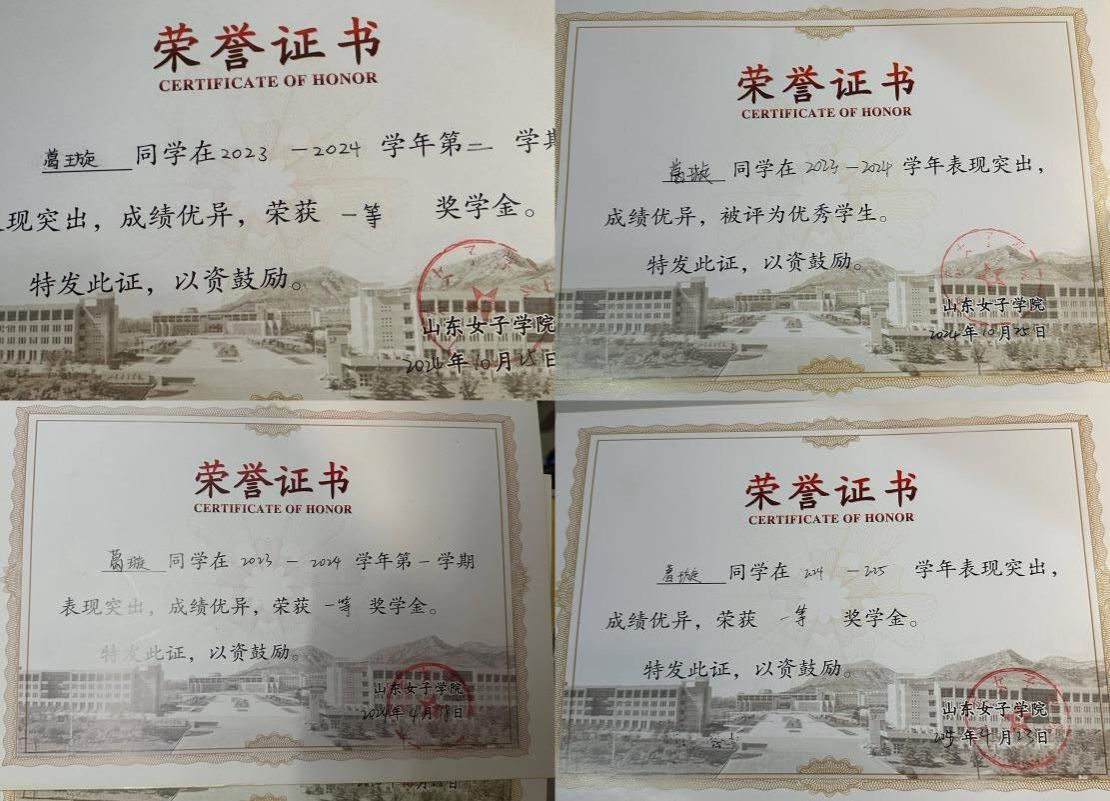 荣誉证书
CERTIFICATE OF HONOR
葛璇 同学在2023-2024 学年第二 学期
现突出，成绩优异，荣获 一等 奖学金。
特发此证，以资鼓励。
山东女子学院
2024年10月25日
荣誉证书
CERTIFICATE OF HONOR
葛璇 同学在 2023-2024 学年表现突出，
成绩优异，被评为优秀学生。
特发此证，以资鼓励。
山东女子学院
2024年10月25日
荣誉证书
CERTIFICATE OF HONOR
葛璇 同学在 2023 - 2024 学年第一学期
表现突出，成绩优异，荣获 一等 奖学金。
特发此证，以资鼓励。
山东女子学院
2024年4月18日
荣誉证书
CERTIFICATE OF HONOR
葛璇 同学在 学年表现突出，
成绩优异，荣获 一等 奖学金。
特发此证，以资鼓励。
山东女子学院
年4月23日